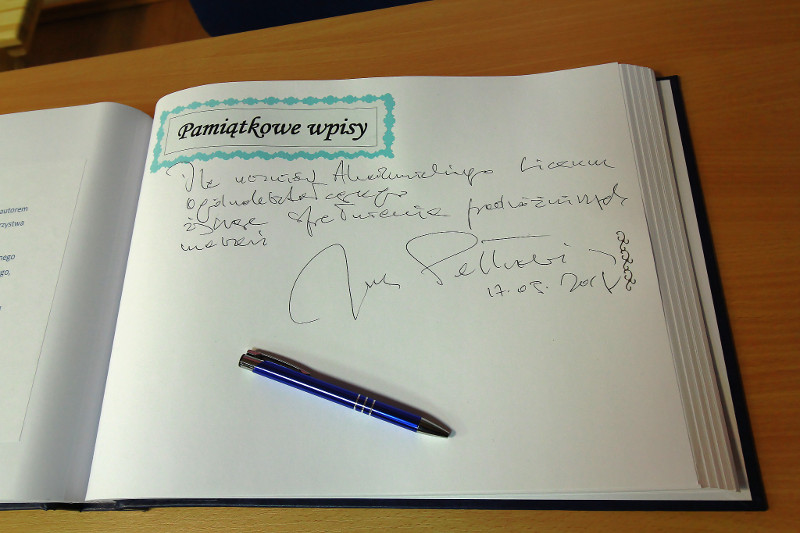 autorem
rzystwa
nego
go,
Pamiątkowe wpisy
Dla uczniów Akademickiego Liceum
Ogólnokształcącego
życzę spełnienia podróżniczych
marzeń
17.05.